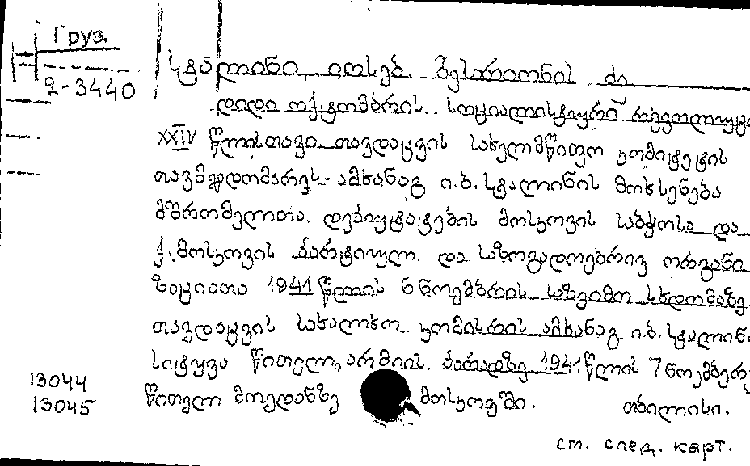 Груз.
2-3440
სტალინი იოსებ ბესარიონის ძე
დიდი ოქტომბრის სოციალისტიური რევოლუცი
XXIV წლისთავი თავდაცვის სახელმწიფო კომიტეტის
თავმჯდომარეს ამხანაგ ი.ბ. სტალინის მოხსენება
მშრომელთა დეპუტატების მოსკოვის საბჭოსა და
ქ. მოსკოვის პარტიულ და საზოგადოებრივ ორგანი
ზაციათა 1941 წლის 6 ნოემბრის საზეიმო სხდომაზე.
თავდაცვის სახალხო კომისრის ამხანაგ ი.ბ. სტალინი
სიტყვა წითელ არმიის პარადზე 1941 წლის 7 ნოემბერ
წითელ მოედანზე მოსკოვში. თბილისი.
13044
13045
ст. след. карт.